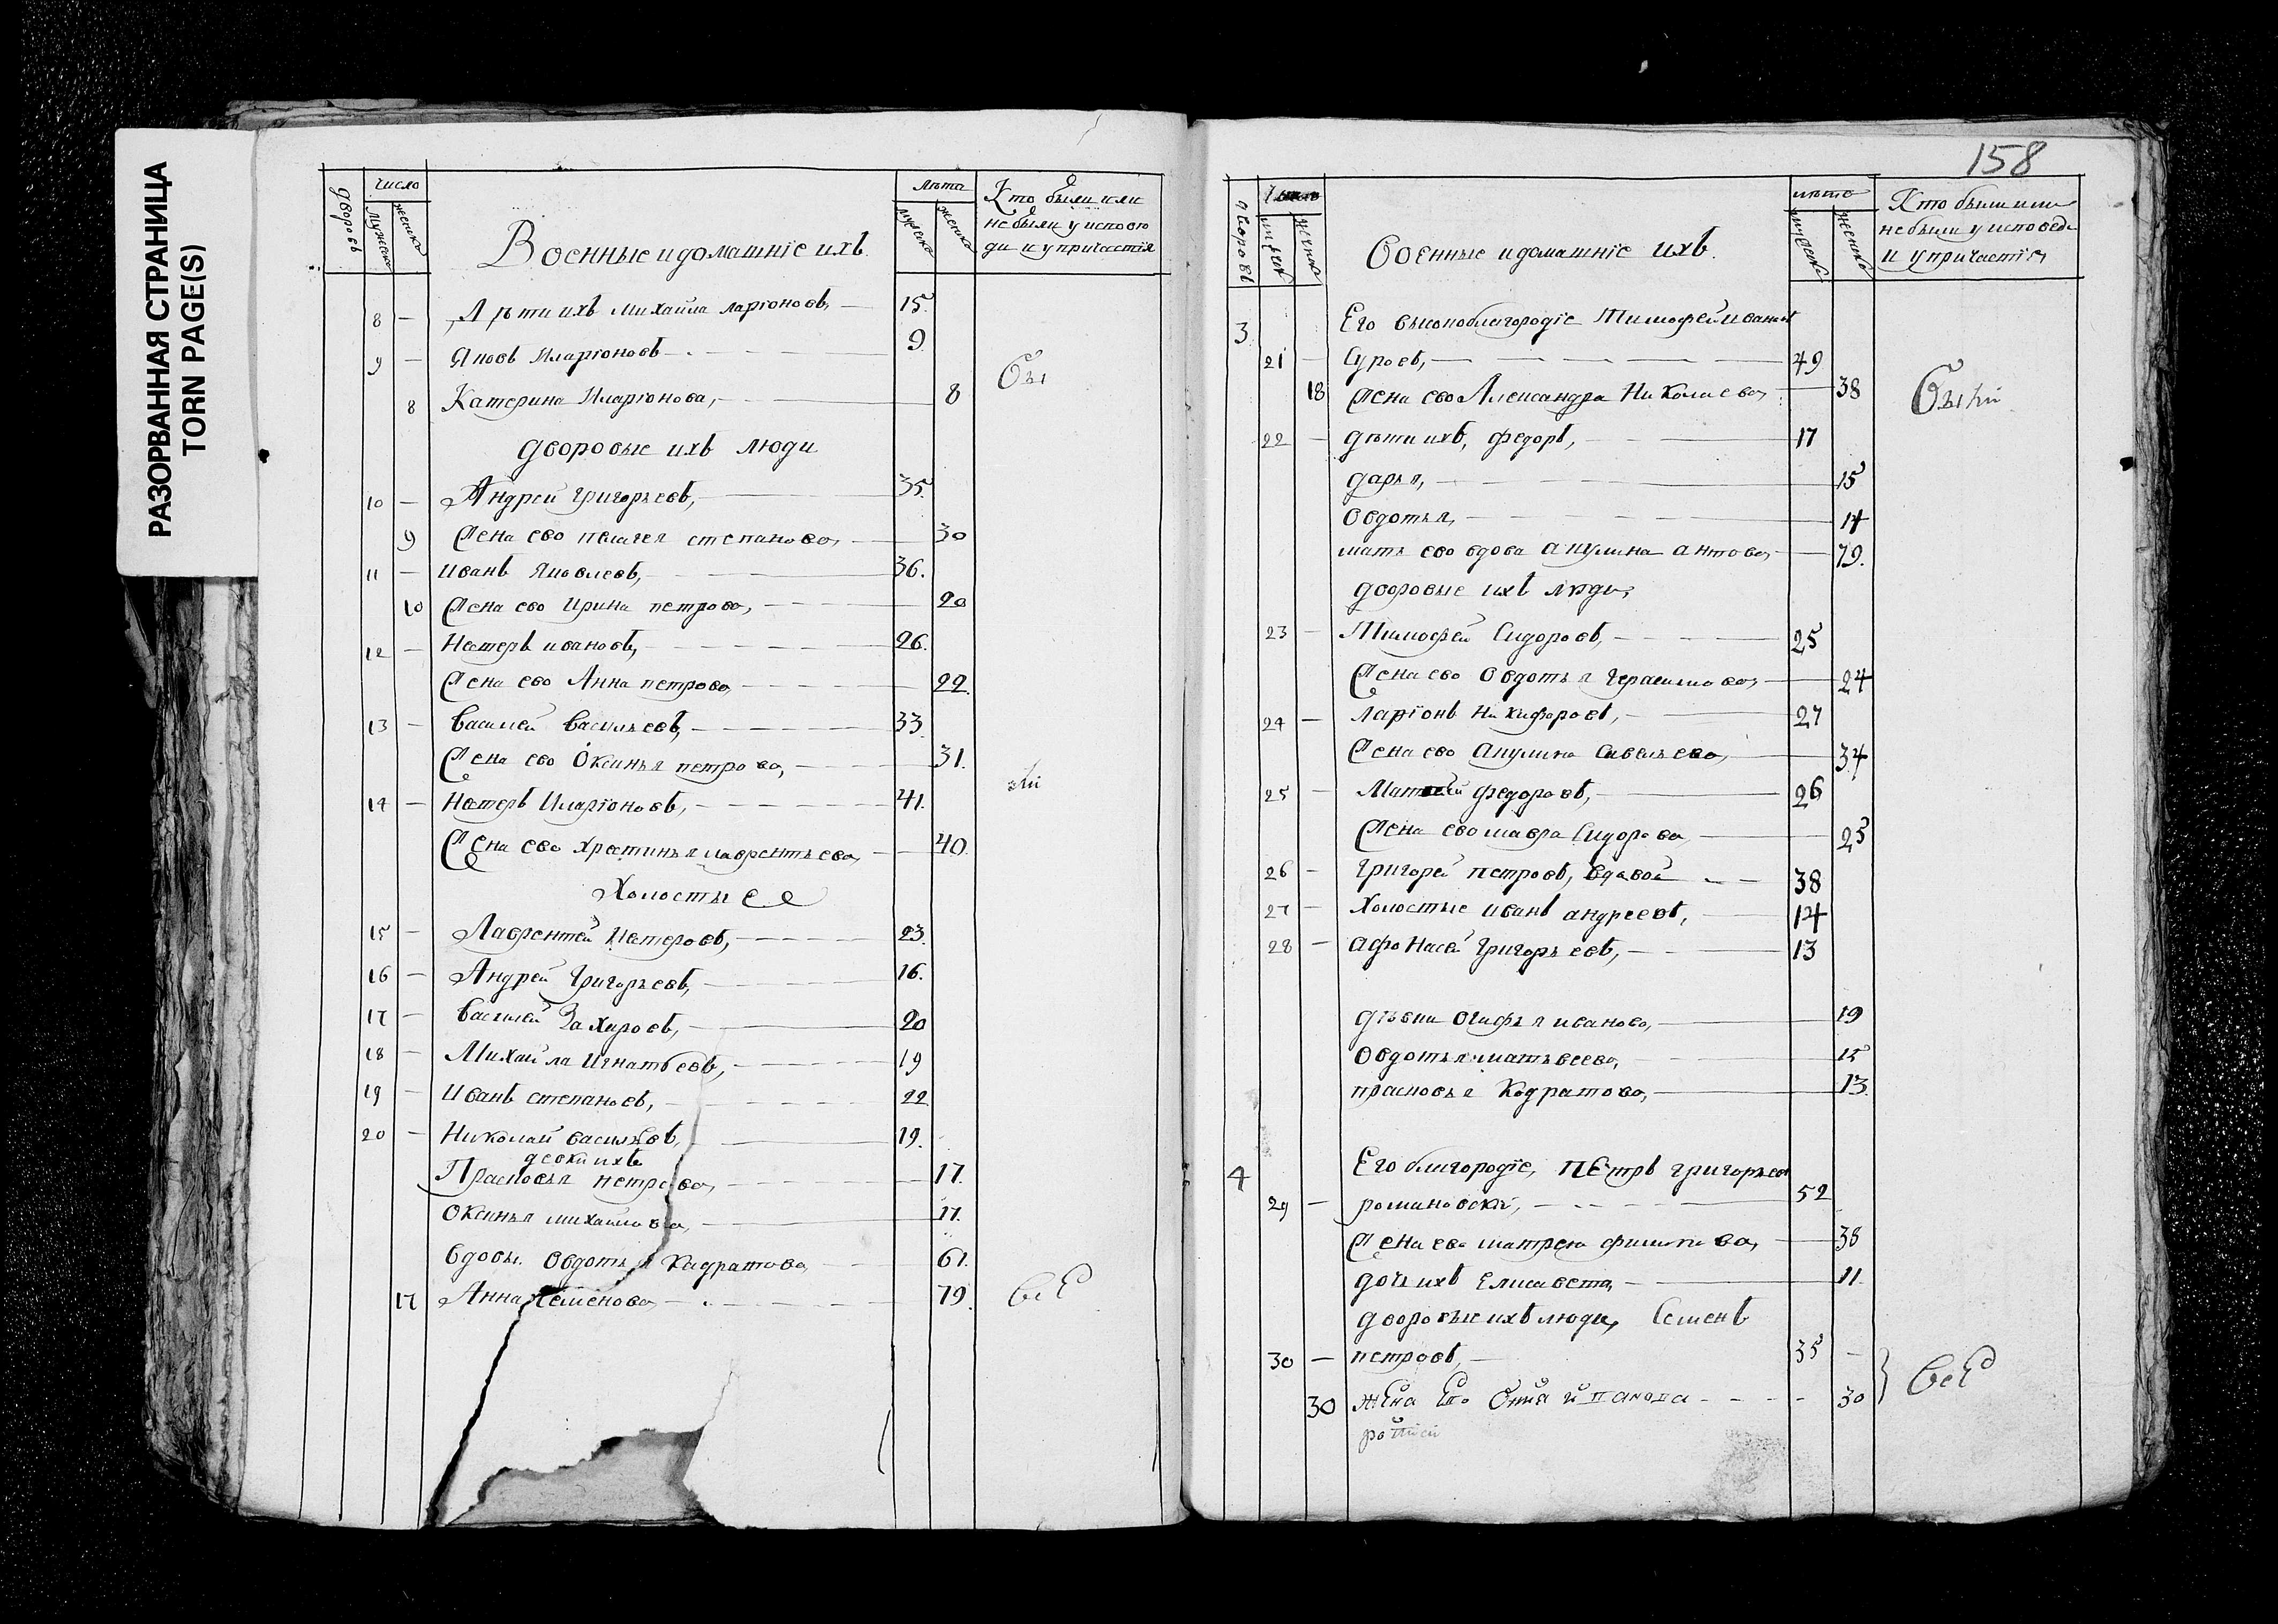 РАЗОРВАННАЯ СТРАНИЦА
TORN PAGE(S)
дворовъ
число
мужеска
женска
Военные и домашніе ихъ
лѣта
мужеска
женска
Кто были или
не были у испове
ди и у причастія
8 — Дѣти ихъ Михайла ларіоновъ, — 15.
9 — Яковъ Иларіоновъ — 9
8 Катерина Иларіонова, — 8
Бы
дворовые ихъ люди
10 — Андрей григорьевъ, — 35.
9 Жена ево пелагея степанова, — 30
11 — иванъ Яковлевъ, — 36.
10 Жена ево Ирина петрова, — 20
12 — Нестеръ ивановъ, — 26.
Жена ево Анна петрова — 22.
13 — василей васильевъ, — 33
Жена ево Оксинья петрова, — 31.
14 — Нестеръ Иларіоновъ, — 41.
ли
Жена ево Хрестинья лаврентьева, — 40
Холостые
15 — Лаврентей Нестеровъ, — 23.
16 — Андрей Григорьевъ, — 16.
17 — василей Захаровъ, — 20
18 — Михайла Игнатьевъ, — 19
19 — Иванъ степановъ, — 22
20 — Николай васильевъ, — 19.
девки ихъ
Прасковья петрова, — 17.
Оксинья михайлова, — 17.
вдовы. Овдотья Кадратова, — 61.
17 Анна семенова — 79
всѣ
158
дворовъ
число
мужеск
женска
военные и домашніе ихъ.
лѣта
мужеска
женска
Кто были или
не были у исповеди
и у причастія
3 Его высокоблагородіе Тимофей иванов
21 — Суровъ, — 49
18 Жена ево Александра Николаева, — 38
Были
22 — дѣти ихъ, федоръ, — 17
дарья, — 15
Овдотья, — 14
мать ево вдова акулина антова, — 79.
дворовые ихъ люди,
23 — Тимофей Сидоровъ, — 25
Жена ево Овдотья герасимова, — 24
24 — Ларіонъ Никифоровъ, — 27
Жена ево акулина савельева, — 34
25 — Матвей федоровъ, — 26
Жена ево мавра Сидорова, — 25
26 — григорей петровъ, вдавой — 38
27 — Холостые иванъ андреевъ, — 14
28 — афонасей григорьевъ, — 13
дѣвки Огафья иванова, — 19
Овдотья матьвеева, — 15
прасковья Кодратова, — 13
4 Его благородіе, пЕтръ григорьев
29 — романовскій, — 52
Жена ево матрена филипова, — 38
дочь ихъ Елисавета, — 11
дворовые ихъ люди, Семенъ
30 — петровъ, — 35 —
30 жЕна Его — 30
всѣ